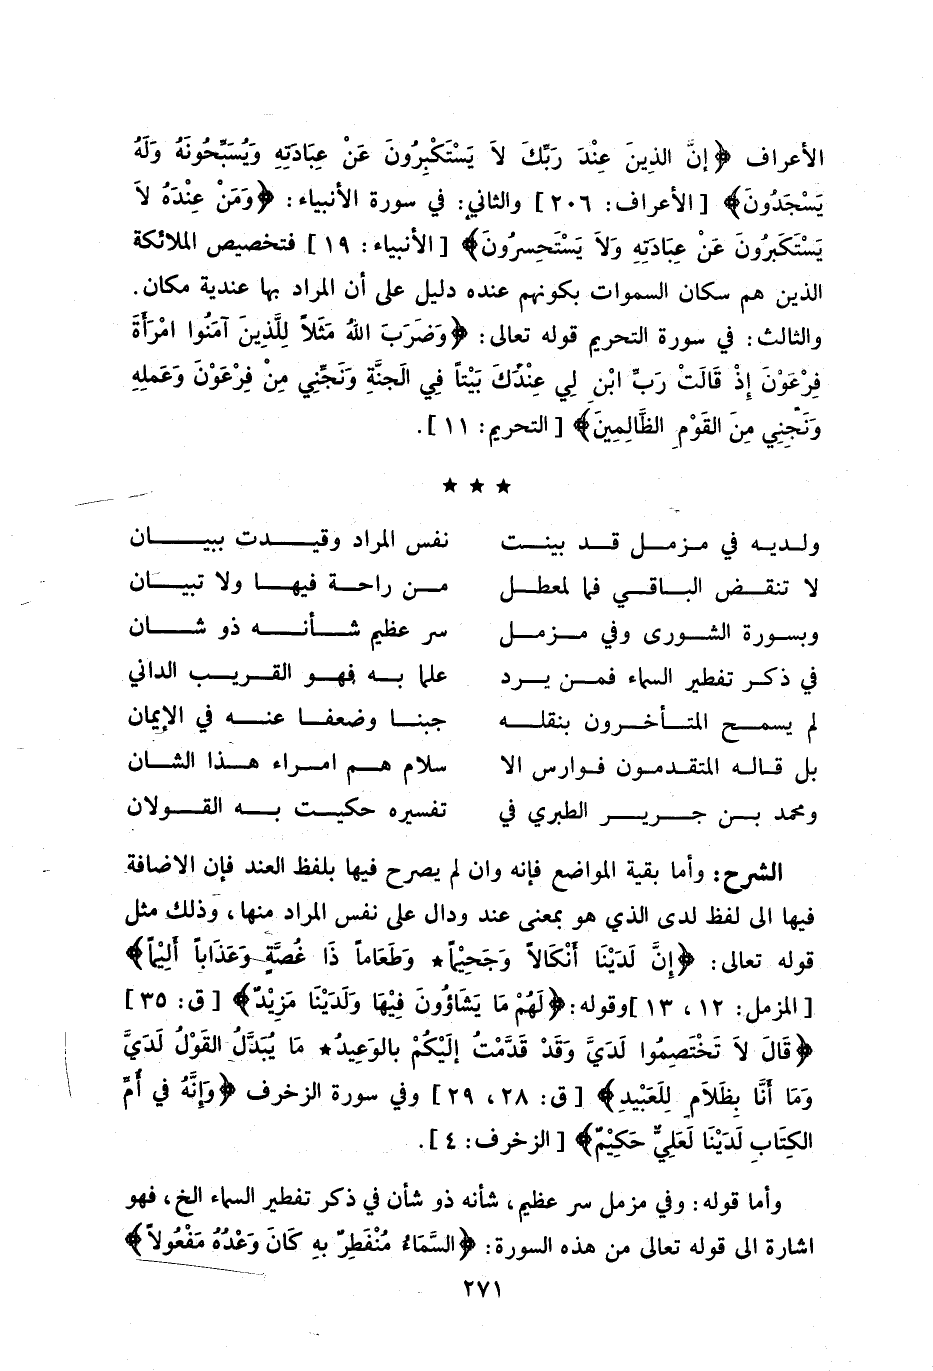 الأعراف ﴿إنَّ الذِينَ عِنْدَ رَبِّكَ لاَ يَسْتَكْبِرُونَ عَنْ عِبَادَتِهِ وَيُسَبِّحُونَهُ وَلَهُ
يَسْجَدُونَ﴾ [الأعراف: ٢٠٦] والثاني: في سورة الأنبياء: ﴿وَمَنْ عِنْدَهُ لاَ
يَسْتَكبِرُونَ عَنْ عِبَادَتِهِ وَلاَ يَسْتَحسِرُونَ﴾ [الأنبياء: ١٩] فتخصيص الملائكة
الذين هم سكان السموات بكونهم عنده دليل على أن المراد بها عندية مكان.
والثالث: في سورة التحريم قوله تعالى: ﴿وَضَرَبَ اللهُ مَثَلاً لِلَّذِينَ آمَنُوا امْرَأَةَ
فِرْعَوْنَ إِذْ قَالَتْ رَبِّ ابْنِ لِي عِنْدَكَ بَيْتاً فِي الَجنَّةِ وَنَجِّنِي مِنْ فِرْعَوْنَ وَعَملِهِ
وَنَجِّنِي مِنَ القَوْمِ الظَّالِمِينَ﴾ [التحريم: ١١].
★ ★ ★
ولديه في مزمل قد بينت نفس المراد وقيدت ببيان
لا تنقض الباقي فما لمعطل من راحة فيها ولا تبيان
وبسورة الشورى وفي مزمل سر عظيم شأنه ذو شان
في ذكر تفطير السماء فمن يرد علما به فهو القريب الداني
لم يسمح المتأخرون بنقله جبنا وضعفا عنه في الإيمان
بل قاله المتقدمون فوارس الا سلام هم امراء هذا الشان
ومحمد بن جرير الطبري في تفسيره حكيت به القولان
الشرح: وأما بقية المواضع فإنه وان لم يصرح فيها بلفظ العند فإن الاضافة
فيها الى لفظ لدى الذي هو بمعنى عند ودال على نفس المراد منها، وذلك مثل
قوله تعالى: ﴿إِنَّ لَدَيْنَا أَنْكَالاً وَجَحيْماً★ وَطَعَاماً ذَا غُصَّةٍ وَعَذَاباً أَليْماً﴾
[المزمل: ١٢، ١٣] وقوله: ﴿لَهُمْ مَا يَشَاؤُونَ فِيْهَا وَلَدَيْنَا مَزِيْدٌ﴾ [ق: ٣٥]
﴿قَالَ لاَ تَخْتَصِمُوا لَدَيَّ وَقَدْ قَدَّمْتُ إلَيْكُمْ بالوَعِيدُ★ مَا يُبَدَّلُ القَوْلُ لَدَيَّ
وَمَا أَنَّا بِظَلاَمٍ لِلعَبْيدِ﴾ [ق: ٢٨، ٢٩] وفي سورة الزخرف ﴿وَإِنَّهُ فِي أُمِّ
الكِتَابِ لَدَيْنَا لَعَلِيٌّ حَكِيْمٌ﴾ [الزخرف: ٤].
وأما قوله: وفي مزمل سر عظيم، شأنه ذو شأن في ذكر تفطير السماء الخ، فهو
اشارة الى قوله تعالى من هذه السورة: ﴿السَّمَاءُ مُنْفَطِرٌ بهِ كَانَ وَعْدُهُ مَفْعُولاً﴾
٢٧١